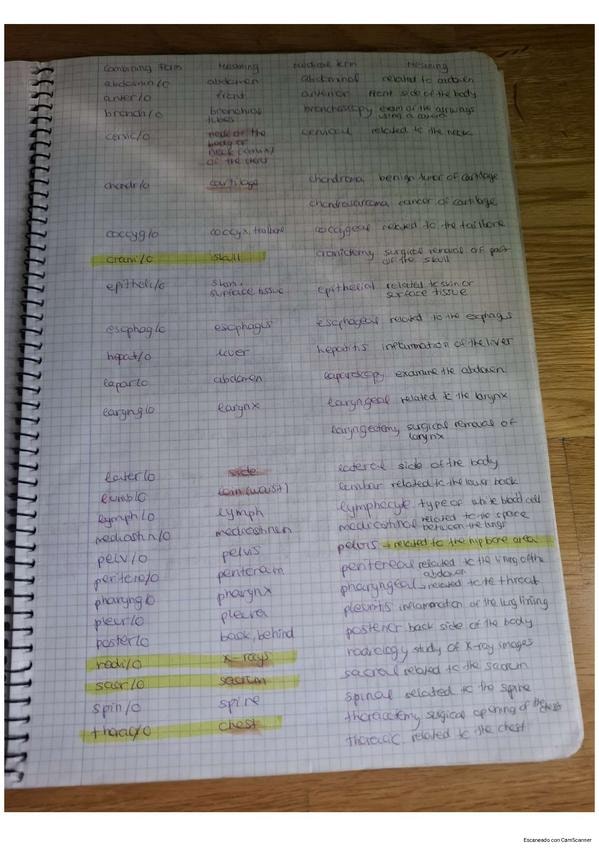 Combining form Meaning Medical term Meaning
abdomin/o abdomen abdominal related to abdomen
anter/o front anterior front side of the body
bronch/o bronchial bronchoscopy exam of the airways
tubes using a
cervic/o neck of the cervical related to the neck
body or
neck (cervix)
of the uterus
chondr/o cartilage chondroma benign tumor of cartilage
chondrosarcoma cancer of cartilage
coccyg/o coccyx, tailbone coccygeal related to the tailbone
crani/o skull craniotomy surgical removal of part
of the skull
epitheli/o skin, epithelial related to skin or
surface tissue surface tissue
esophag/o esophagus esophageal related to the esophagus
hepat/o liver hepatitis inflammation of the liver
lapar/o abdomen laparoscopy examine the abdomen
laryng/o larynx laryngeal related to the larynx
laryngectomy surgical removal of
larynx
later/o side lateral side of the body
lumb/o loin (waist) lumbar related to the lower back
lymph/o lymph lymphocyte type of white blood cell
mediastin/o mediastinum mediastinal related to the space
between the lungs
pelv/o pelvis pelvis → related to the hip bone area
peritone/o peritoneal related to the lining of the
abdomen
pharyng/o pharynx pharyngeal → related to te throat
pleur/o pleura pleuritis inflammation of the lung lining
poster/o back, behind posterior back side of the body
radi/o x-rays radiology study of X-ray images
sacr/o sacrum sacral related to the sacrum
spin/o spine spinal related to the spine
thorac/o chest thoracotomy surgical opening of the chest
thoracic related to the chest
Escaneado con CamScanner